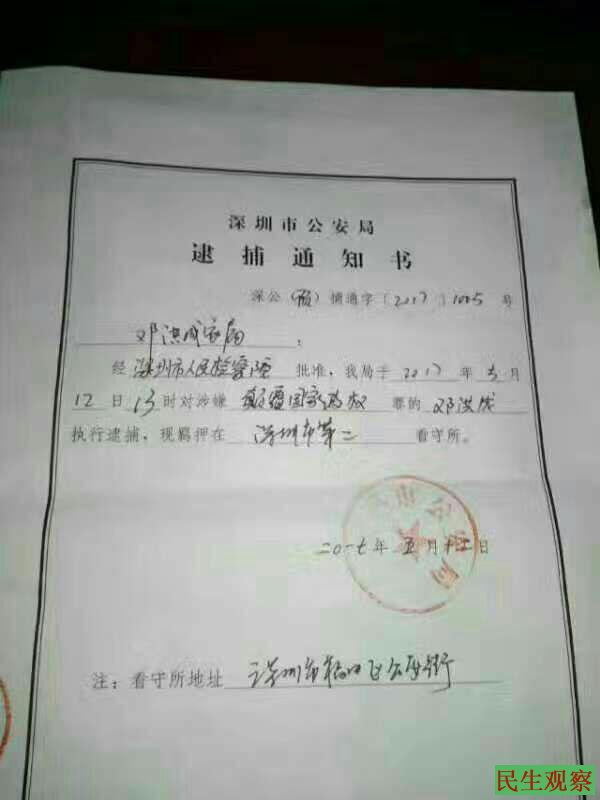 深圳市公安局
逮捕通知书
深公(预)捕通字〔2017〕1005号
邓洪成家属:
经深圳市人民检察院批准,我局于2017年5月
12日13时对涉嫌颠覆国家政权罪的邓洪成
执行逮捕,现羁押在深圳市第二看守所。
市公安局
二〇一七年五月十二日
注:看守所地址 深圳市
民生观察